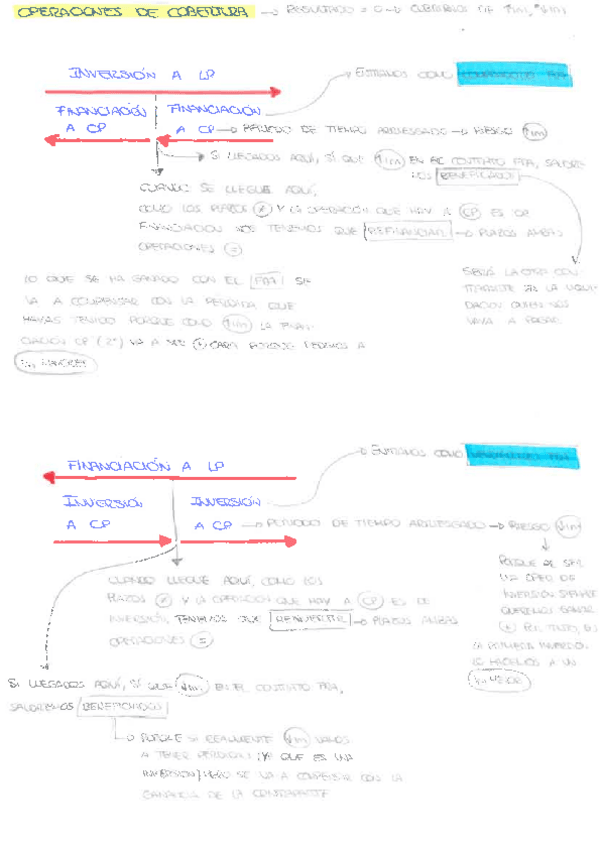 OPERACIONES DE COBERTURA → RESULTADO = 0 →
INVERSIÓN A LP
→ ENTRAMOS COMO COMPRADORES FRA
FINANCIACIÓN FINANCIACIÓN
A CP A CP → PERIODO DE TIEMPO ARRIESGADO → RIESGO ↑im
→ SI LLEGADOS AQUÍ, SÍ QUE ↑im EN EL CONTRATO FRA, SALDRE-
MOS BENEFICIADOS
CUANDO SE LLEGUE AQUÍ,
COMO LOS PLAZOS ≠ Y LA OPERACIÓN QUE HAY A CP ES DE
FINANCIACIÓN NOS TENEMOS QUE REFINANCIAR → PLAZOS AMBAS
OPERACIONES =
SERÁ LA OTRA CON-
TRAPARTE EN LA LIQUI-
DACIÓN QUIEN NOS
VAYA A PAGAR
LO QUE SE HA GANADO CON EL FRA SE
VA A COMPENSAR CON LA PÉRDIDA QUE
HAYAS TENIDO PORQUE COMO ↑im LA FINAN-
CIACIÓN CP (2ª) VA A SER + CARA PORQUE IREMOS A
im MAYORES
→ ENTRAMOS COMO VENDEDORES FRA
FINANCIACIÓN A LP
INVERSIÓN INVERSIÓN
A CP A CP → PERIODO DE TIEMPO ARRIESGADO → RIESGO ↓im
CUANDO LLEGUE AQUÍ, COMO LOS
PLAZOS ≠ Y LA OPERACIÓN QUE HAY A CP ES DE
INVERSIÓN, TENEMOS QUE REINVERTIR → PLAZOS AMBAS
OPERACIONES =
PORQUE AL SER
UNA OPER. DE
INVERSIÓN SIEMPRE
QUEREMOS GANAR
+ POR TANTO, EN
LA PRIMERA INVERSIÓN
LO HACEMOS A UN
im MAYOR
SI LLEGADOS AQUÍ, SÍ QUE ↓im EN EL CONTRATO FRA,
SALDREMOS BENEFICIADOS
→ PORQUE SI REALMENTE ↓im VAMOS
A TENER PÉRDIDAS (YA QUE ES UNA
INVERSIÓN) PERO SE VA A COMPENSAR CON LA
GANANCIA DE LA CONTRAPARTE